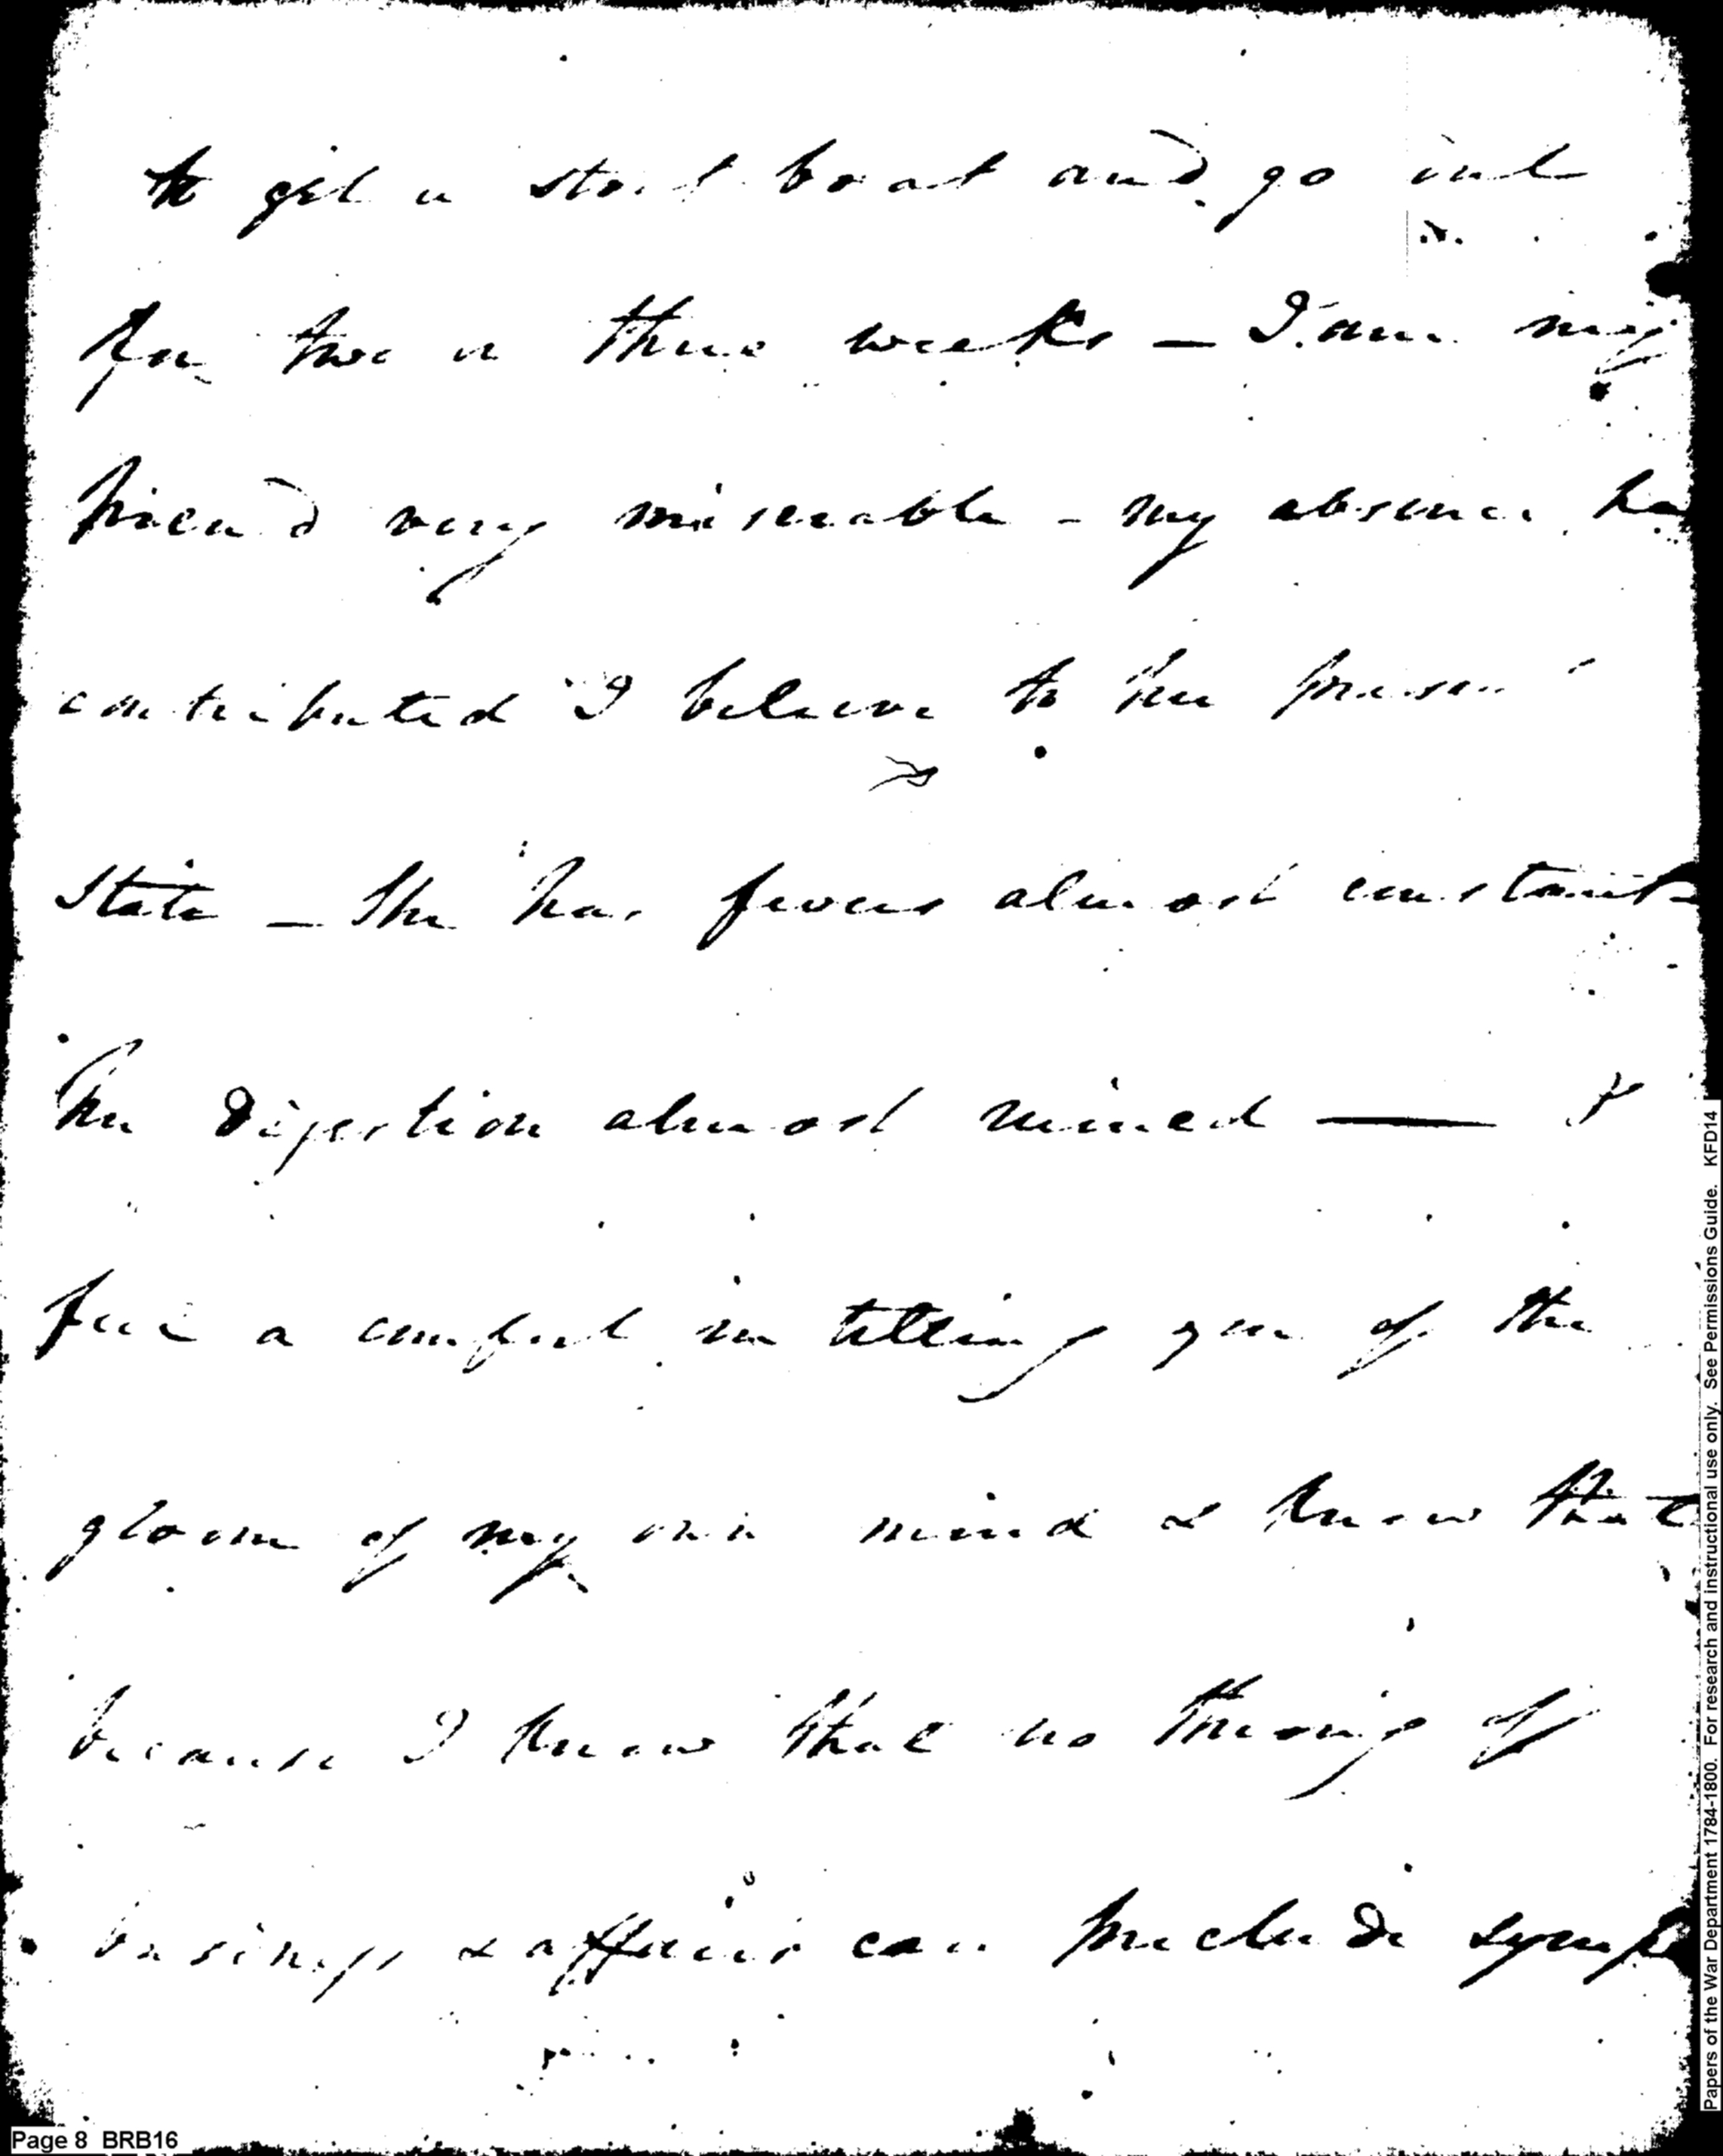 to get a stout boat and go out
for two or three weeks – I am my
friend very miserable – my absence ha
contributed I believe to her present
state – She has fevers almost constant
her digestion almost ruined — I
feel a comfort in telling you of the
gloom of my own mind & know that
because I know that no throng of
business & affairs can preclude symp
Page 8 BRB16
Papers of the War Department 1784-1800. For research and instructional use only. See Permissions Guide. KFD14